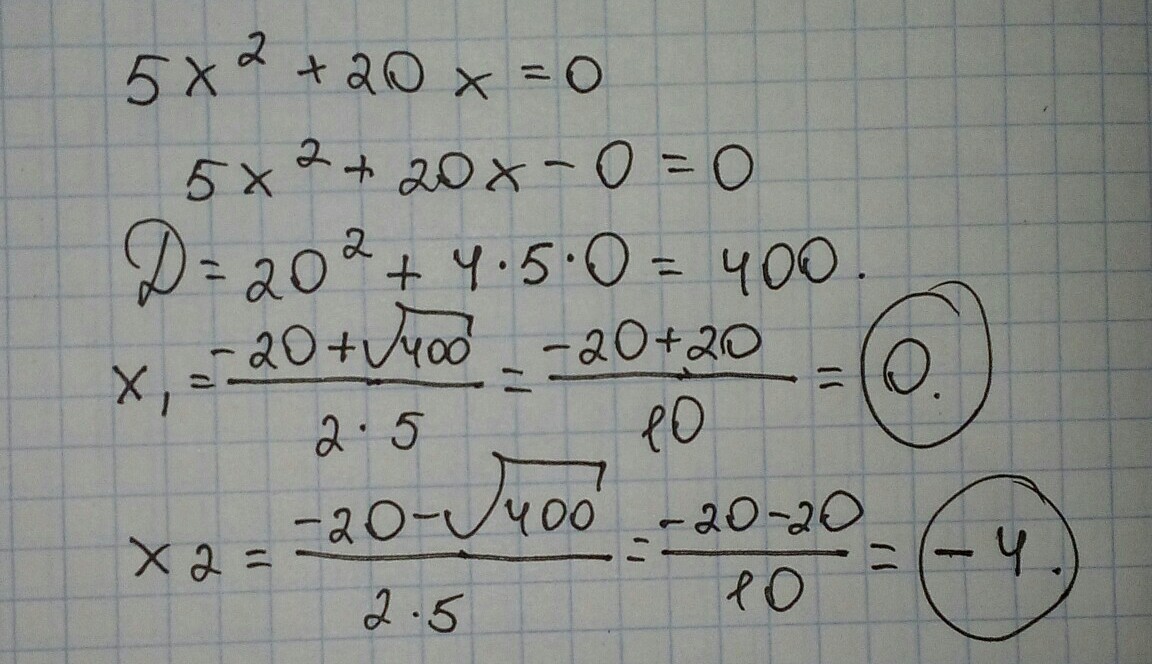 5x² + 20x = 0
5x² + 20x - 0 = 0
D = 20² + 4·5·0 = 400.
x₁ = (-20+√400)/(2·5) = (-20+20)/10 = 0.
x2 = (-20-√400)/(2·5) = (-20-20)/10 = -4.